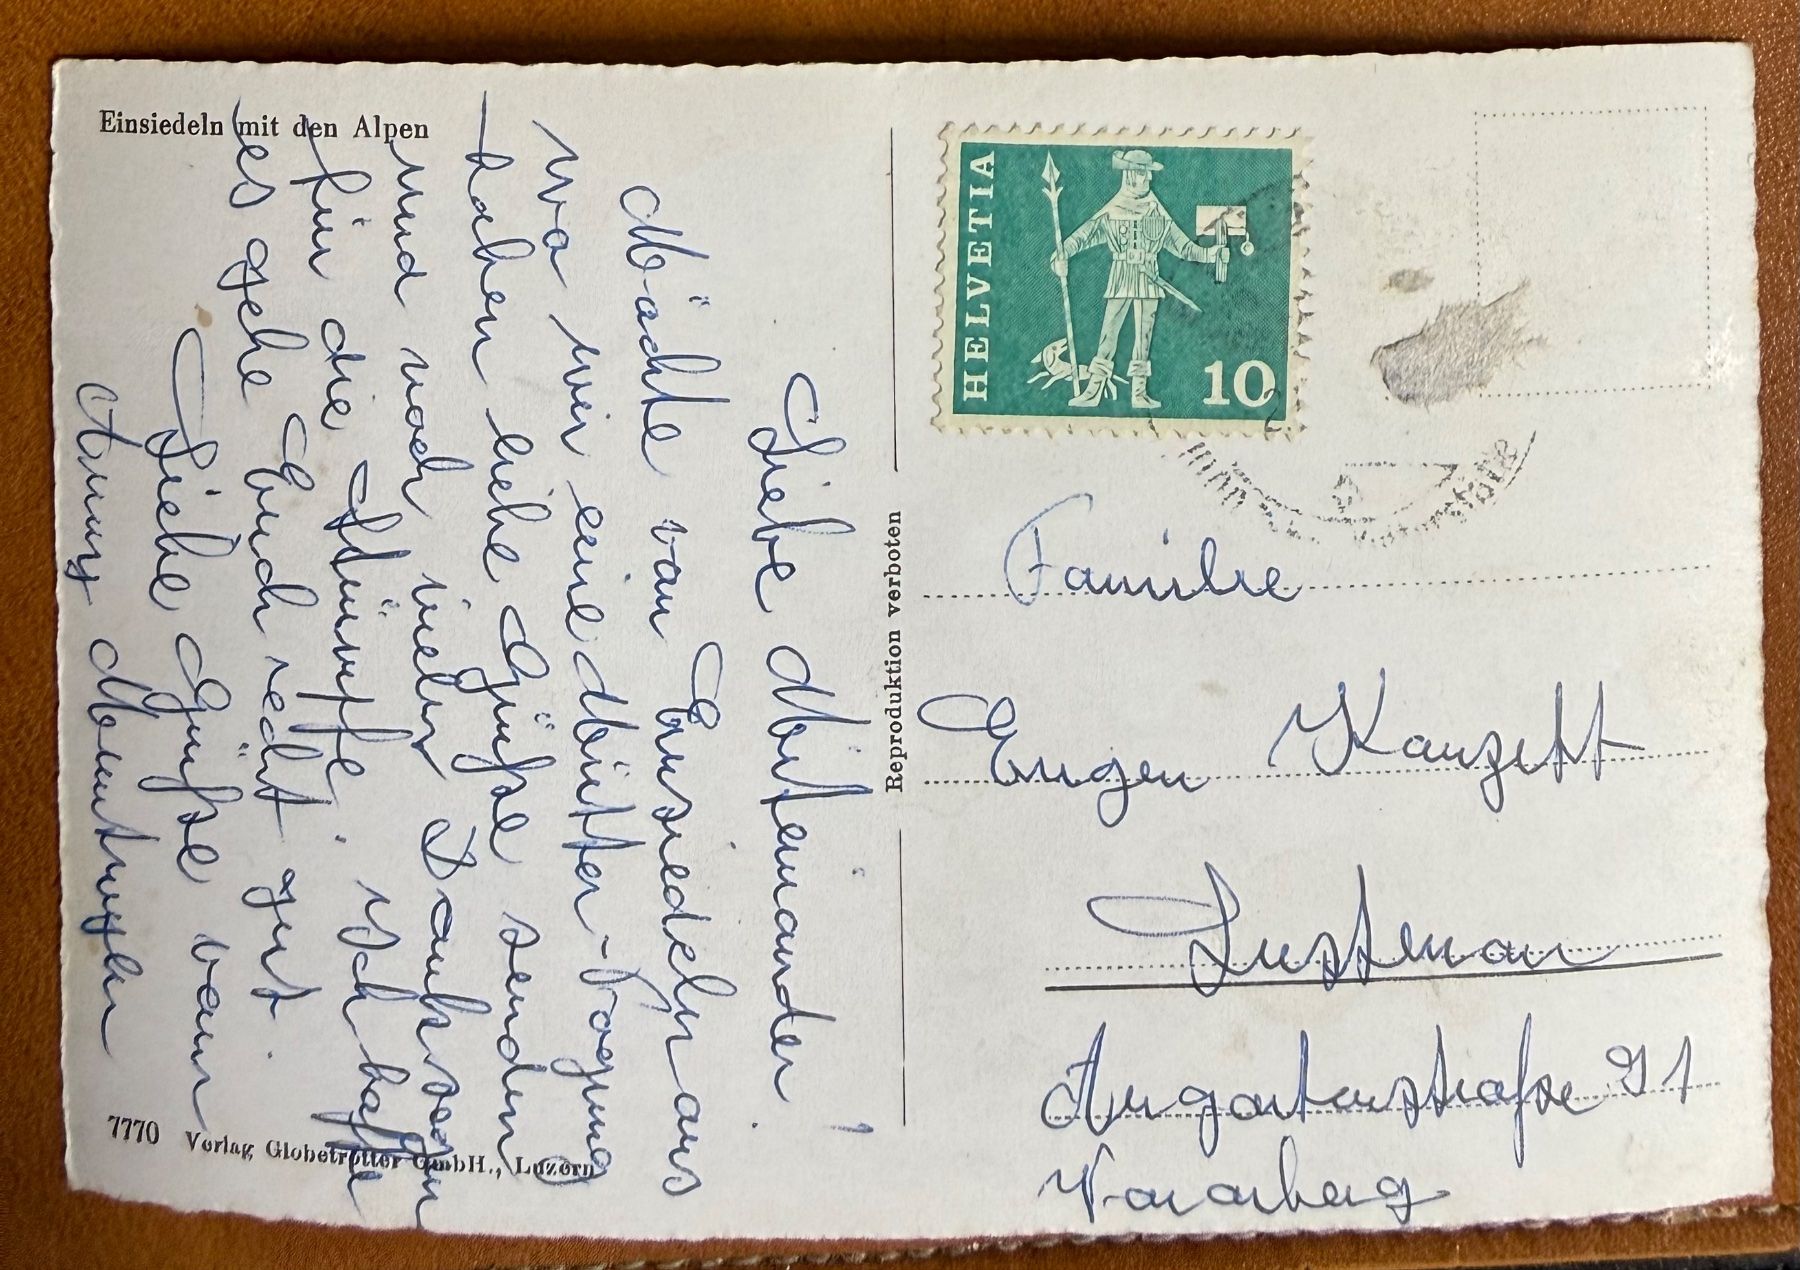 Einsiedeln mit den Alpen
Liebe Miteinander!
Möchte von Einsiedeln aus
wo wir eine Mütter-Tagung
haben liebe Grüße senden
und noch vielm Dank sagen
für die Strümpfe. Ich hoffe
es gehe Euch recht gut.
Liebe Grüße von
Anny
7770 Verlag Globetrotter GmbH., Luzern
Reproduktion verboten
HELVETIA
10
Familie
Eugen Kanzett
Lustenau
Augartenstraße 21
Vorarlberg